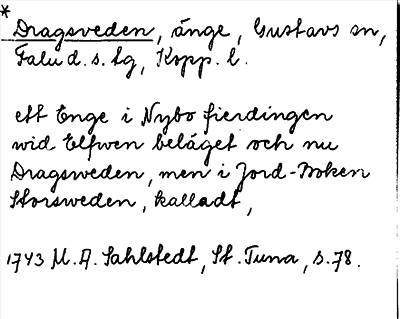 * Dragsveden, änge, Gustavs sn,
Falu d. s. lg, Kopp. l.
ett Enge i Nybo fierdingen
wid Elfwen beläget och nu
Dragsweden, men i Jord-Boken
Storsweden, kalladt,
1743 M. A. Sahlstedt, St. Tuna, s. 78.